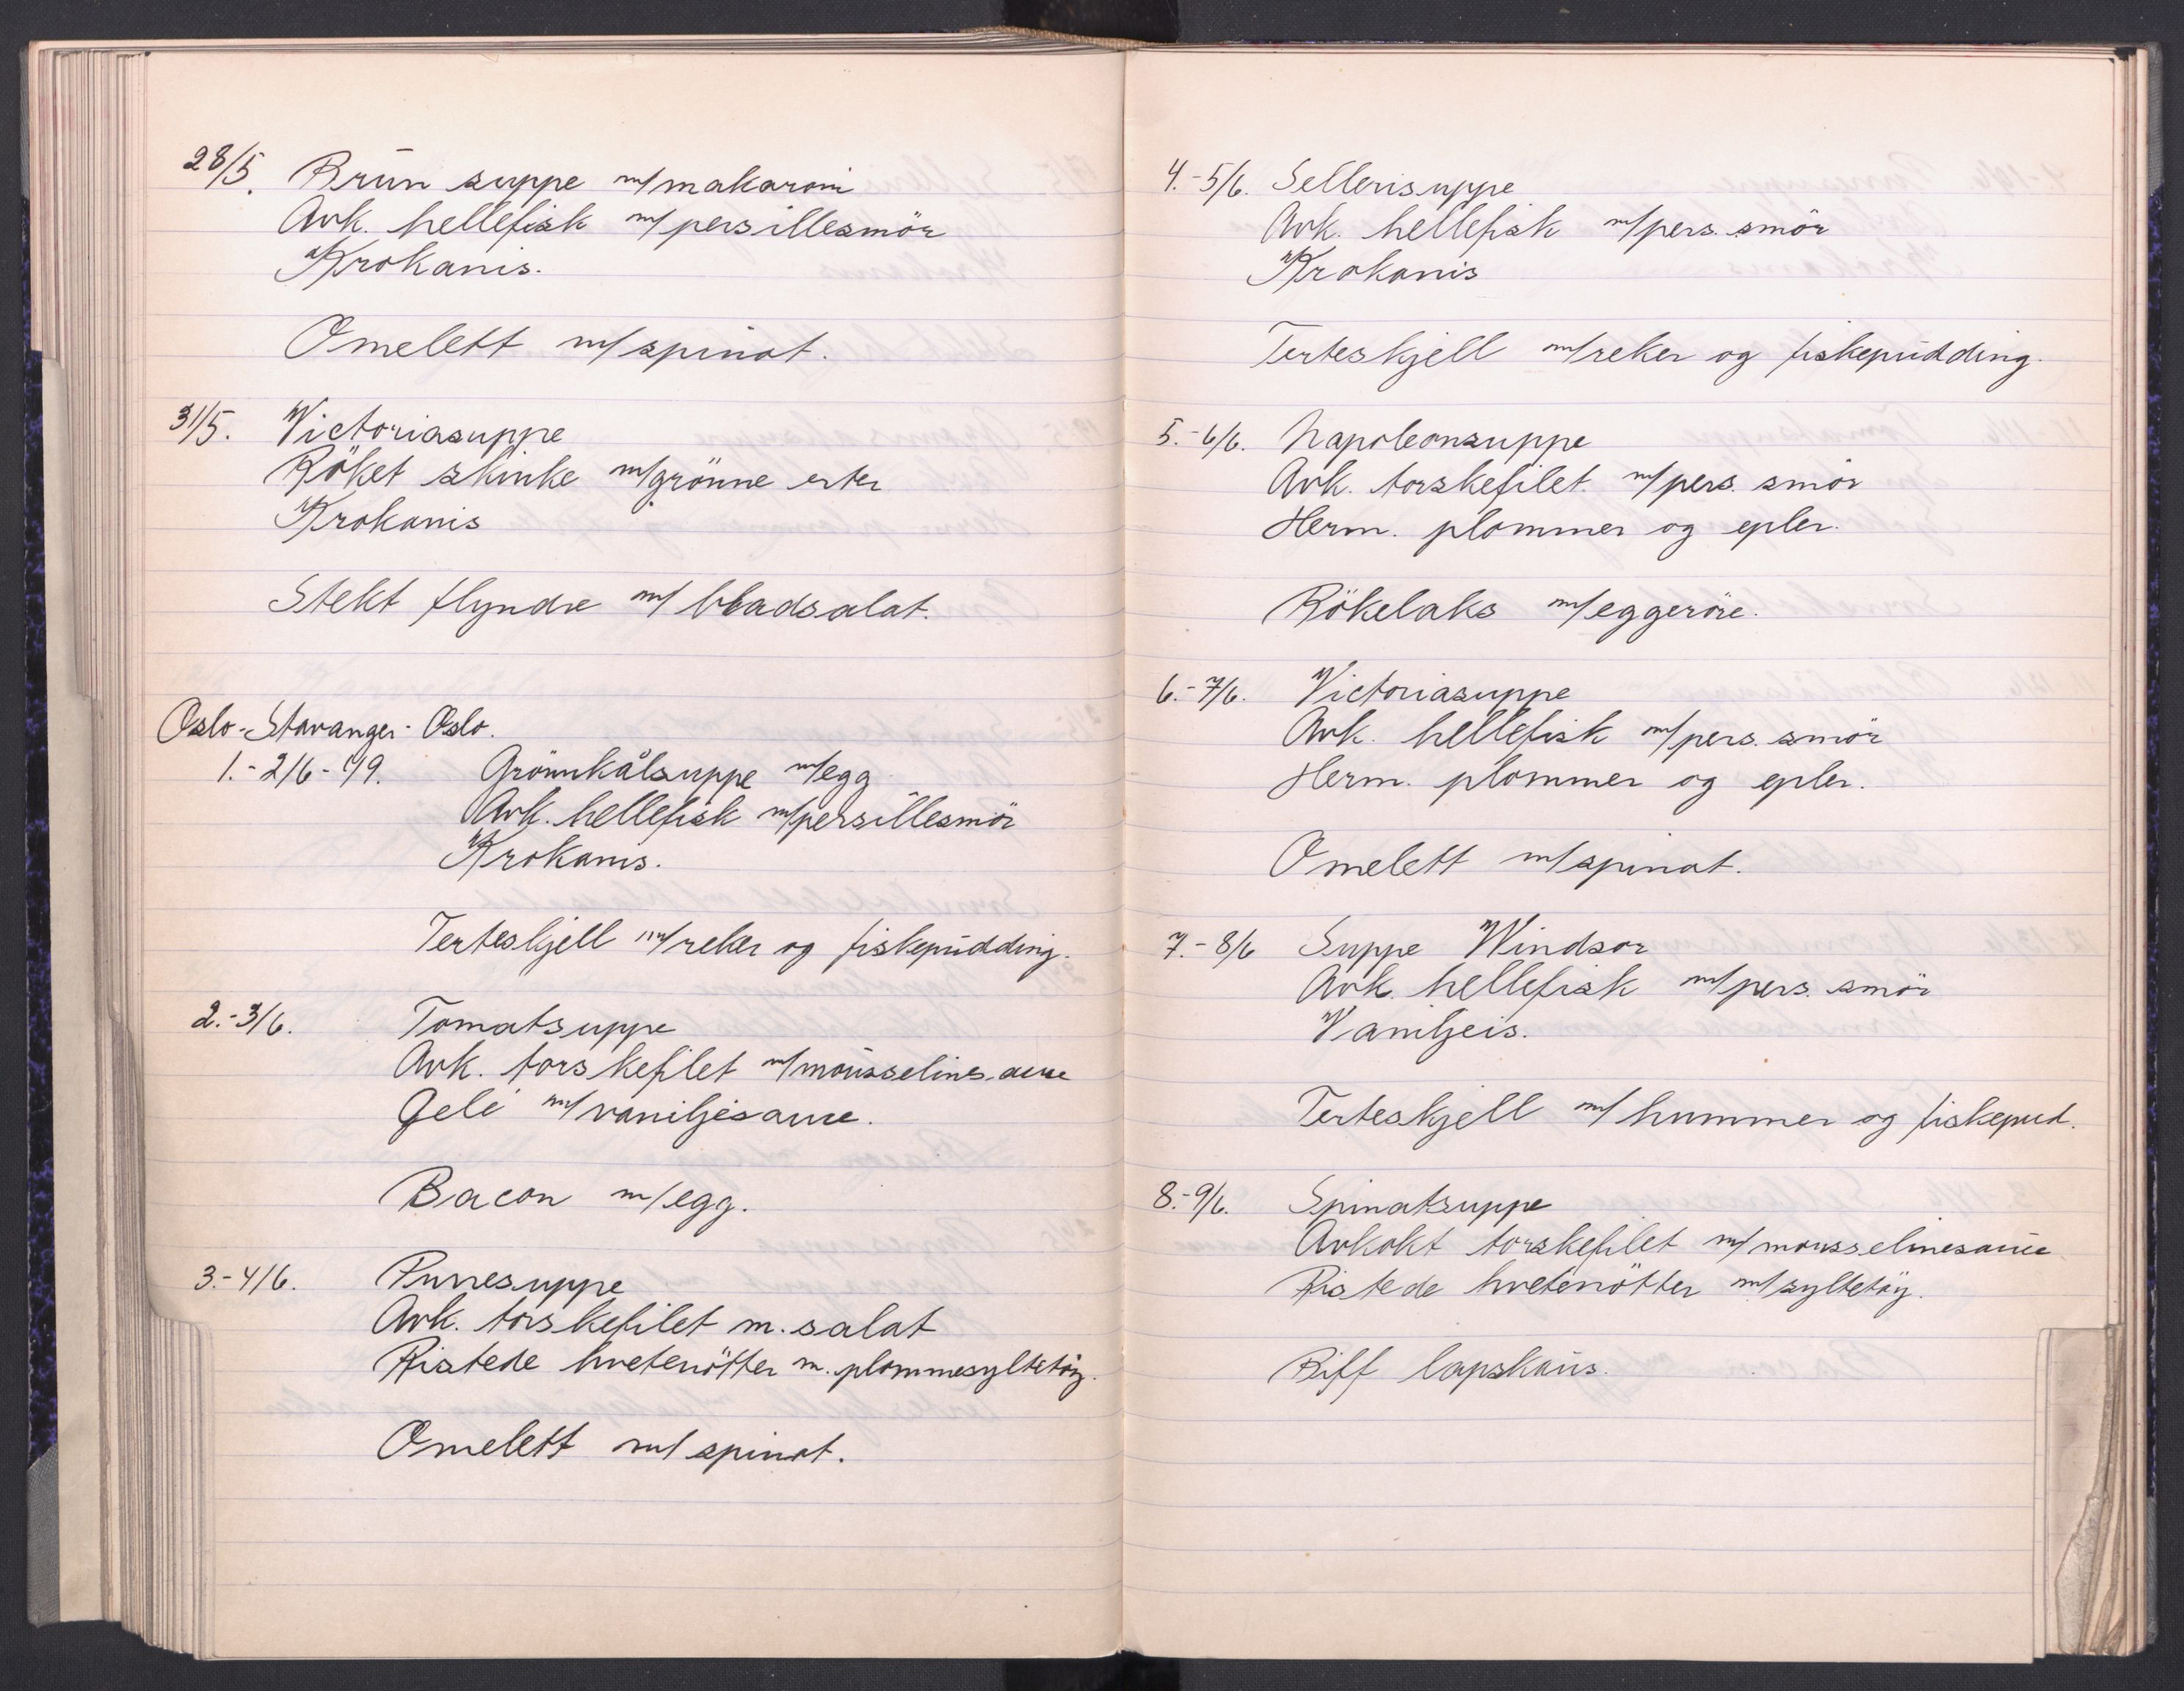 28/5. Brun suppe m/makaroni
Avk. hellefisk m/persillesmör
Krokanis.
Omelett m/spinat.
31/5. Victoriasuppe
Röket skinke m/grönne erter
Krokanis
Stekt flyndre m/ bladsalat.
Oslo-Stavanger-Oslo.
1.-2/6-49. Grönnkålsuppe m/egg
Avk. hellefisk m/persillesmör
Krokanis.
Terteskjell m/reker og fiskepudding.
2.-3/6. Tomatsuppe
Avk. torskefilet m/mousselinesaue
Gelé m/vaniljesaue.
Bacon m/egg.
3.-4/6. Purresuppe
Avk. torskefilet m. salat
Ristede hvetenötter m. plommesyltetöy.
Omelett m/ spinat.
4.-5/6. Sellerisuppe
Avk. hellefisk m/pers. smör
Krokanis
Terteskjell m/reker og fiskepudding.
5.-6/6. Napoleonsuppe
Avk. torskefilet m/pers. smör
Herm. plommer og epler.
Rökelaks m/eggeröre.
6.-7/6. Victoriasuppe
Avk. hellefisk m/pers. smör
Herm. plommer og epler.
Omelett m/spinat.
7.-8/6 Suppe Windsor
Avk. hellefisk m/pers. smör
Vaniljeis.
Terteskjell m/ hummer og fiskepud.
8.-9/6. Spinatsuppe
Avkokt torskefilet m/mousselinesaue
Ristede hvetenötter m/syltetöy.
Biff lapskaus.